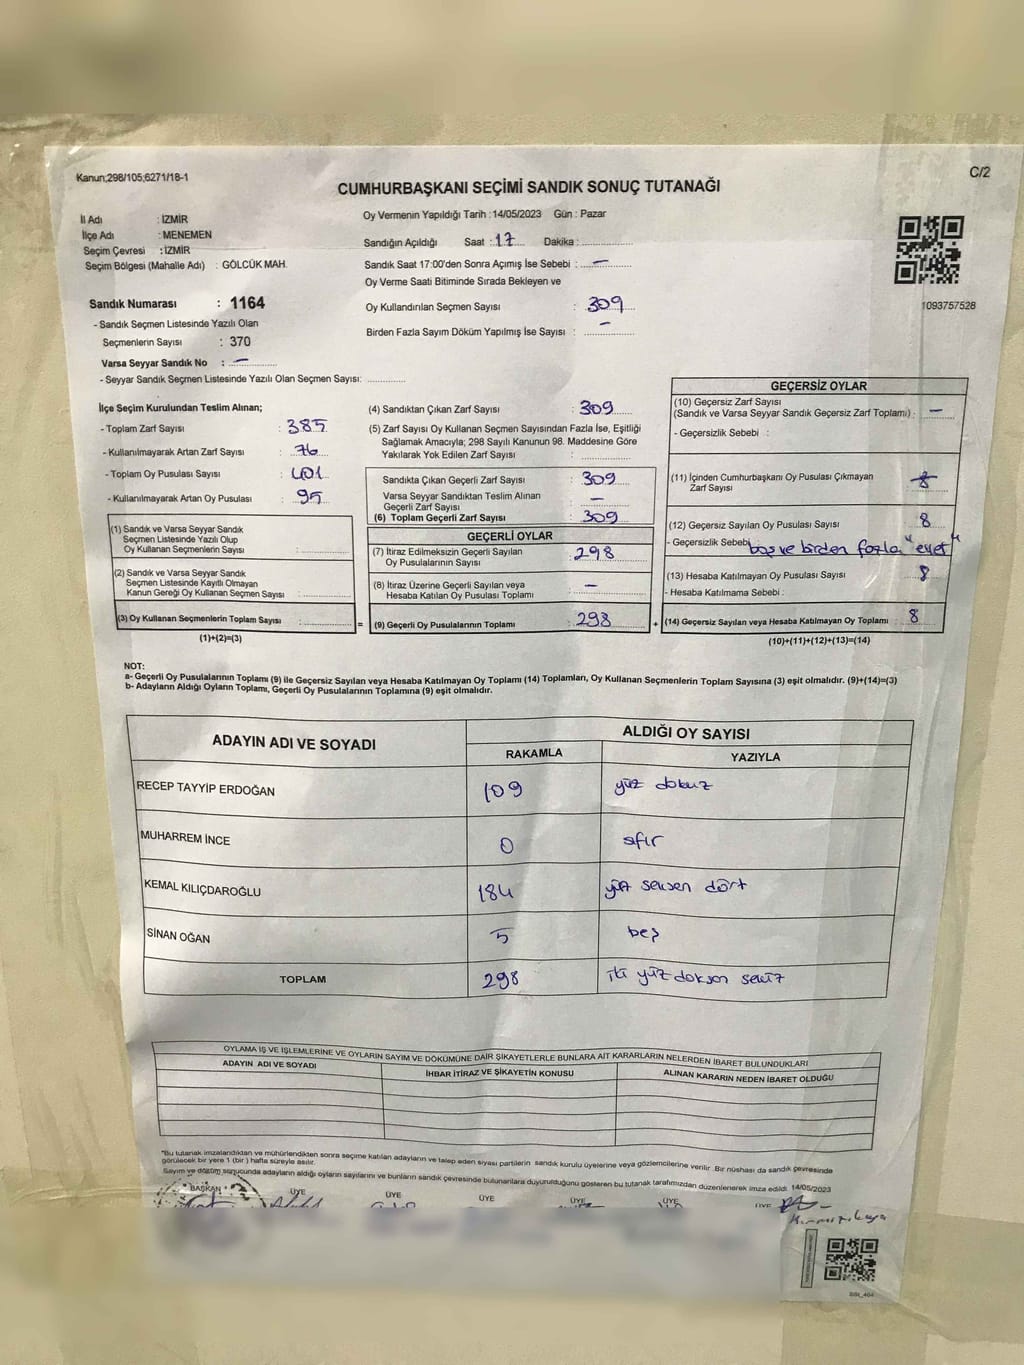 Kanun;298/105;6271/18-1
C/2
CUMHURBAŞKANI SEÇİMİ SANDIK SONUÇ TUTANAĞI
İl Adı : İZMİR
İlçe Adı : MENEMEN
Seçim Çevresi : İZMİR
Seçim Bölgesi (Mahalle Adı) : GÖLCÜK MAH.
Oy Vermenin Yapıldığı Tarih :14/05/2023 Gün : Pazar
Sandığın Açıldığı Saat : 17 Dakika :
Sandık Saat 17:00'den Sonra Açımış İse Sebebi : —
Oy Verme Saati Bitiminde Sırada Bekleyen ve
Oy Kullandırılan Seçmen Sayısı : 309
Birden Fazla Sayım Döküm Yapılmış İse Sayısı : —
1093757528
Sandık Numarası : 1164
- Sandık Seçmen Listesinde Yazılı Olan
Seçmenlerin Sayısı : 370
Varsa Seyyar Sandık No : —
- Seyyar Sandık Seçmen Listesinde Yazılı Olan Seçmen Sayısı:
İlçe Seçim Kurulundan Teslim Alınan;
- Toplam Zarf Sayısı : 385
- Kullanılmayarak Artan Zarf Sayısı : 76
- Toplam Oy Pusulası Sayısı : 401
- Kullanılmayarak Artan Oy Pusulası : 95
(1) Sandık ve Varsa Seyyar Sandık
Seçmen Listesinde Yazılı Olup
Oy Kullanan Seçmenlerin Sayısı :
(2) Sandık ve Varsa Seyyar Sandık
Seçmen Listesinde Kayıtlı Olmayan
Kanun Gereği Oy Kullanan Seçmen Sayısı :
(3) Oy Kullanan Seçmenlerin Toplam Sayısı :
(1)+(2)=(3)
(4) Sandıktan Çıkan Zarf Sayısı : 309
(5) Zarf Sayısı Oy Kullanan Seçmen Sayısından Fazla İse, Eşitliği
Sağlamak Amacıyla; 298 Sayılı Kanunun 98. Maddesine Göre
Yakılarak Yok Edilen Zarf Sayısı :
Sandıkta Çıkan Geçerli Zarf Sayısı : 309
Varsa Seyyar Sandıktan Teslim Alınan
Geçerli Zarf Sayısı : —
(6) Toplam Geçerli Zarf Sayısı : 309
GEÇERLİ OYLAR
(7) İtiraz Edilmeksizin Geçerli Sayılan
Oy Pusulalarının Sayısı : 298
(8) İtiraz Üzerine Geçerli Sayılan veya
Hesaba Katılan Oy Pusulası Toplamı : —
= (9) Geçerli Oy Pusulalarının Toplamı : 298 +
GEÇERSİZ OYLAR
(10) Geçersiz Zarf Sayısı
(Sandık ve Varsa Seyyar Sandık Geçersiz Zarf Toplamı) : —
- Geçersizlik Sebebi :
(11) İçinden Cumhurbaşkanı Oy Pusulası Çıkmayan
Zarf Sayısı :
(12) Geçersiz Sayılan Oy Pusulası Sayısı : 8
- Geçersizlik Sebebi boş ve birden fazla "evet"
(13) Hesaba Katılmayan Oy Pusulası Sayısı : 8
- Hesaba Katılmama Sebebi :
(14) Geçersiz Sayılan veya Hesaba Katılmayan Oy Toplamı : 8
(10)+(11)+(12)+(13)=(14)
NOT:
a- Geçerli Oy Pusulalarının Toplamı (9) ile Geçersiz Sayılan veya Hesaba Katılmayan Oy Toplamı (14) Toplamları, Oy Kullanan Seçmenlerin Toplam Sayısına (3) eşit olmalıdır. (9)+(14)=(3)
b- Adayların Aldığı Oyların Toplamı, Geçerli Oy Pusulalarının Toplamına (9) eşit olmalıdır.
ADAYIN ADI VE SOYADI
ALDIĞI OY SAYISI
RAKAMLA YAZIYLA
RECEP TAYYİP ERDOĞAN 109 yüz dokuz
MUHARREM İNCE 0 sıfır
KEMAL KILIÇDAROĞLU 184 yüz seksen dört
SİNAN OĞAN 5 beş
TOPLAM 298 iki yüz doksan sekiz
OYLAMA İŞ VE İŞLEMLERİNE VE OYLARIN SAYIM VE DÖKÜMÜNE DAİR ŞİKAYETLERLE BUNLARA AİT KARARLARIN NELERDEN İBARET BULUNDUKLARI
ADAYIN ADI VE SOYADI İHBAR İTİRAZ VE ŞİKAYETİN KONUSU ALINAN KARARIN NEDEN İBARET OLDUĞU
*Bu tutanak imzalandıktan ve mühürlendikten sonra seçime katılan adayların ve talep eden siyasi partilerin sandık kurulu üyelerine veya gözlemcilerine verilir. Bir nüshası da sandık çevresinde
görülecek bir yere 1 (bir) hafta süreyle asılır.
Sayım ve döküm sonucunda adayların aldığı oyların sayılarını ve bunların sandık çevresinde bulunanlara duyurulduğunu gösteren bu tutanak tarafımızdan düzenlenerek imza edildi. 14/05/2023
BAŞKAN ÜYE ÜYE ÜYE ÜYE ÜYE ÜYE